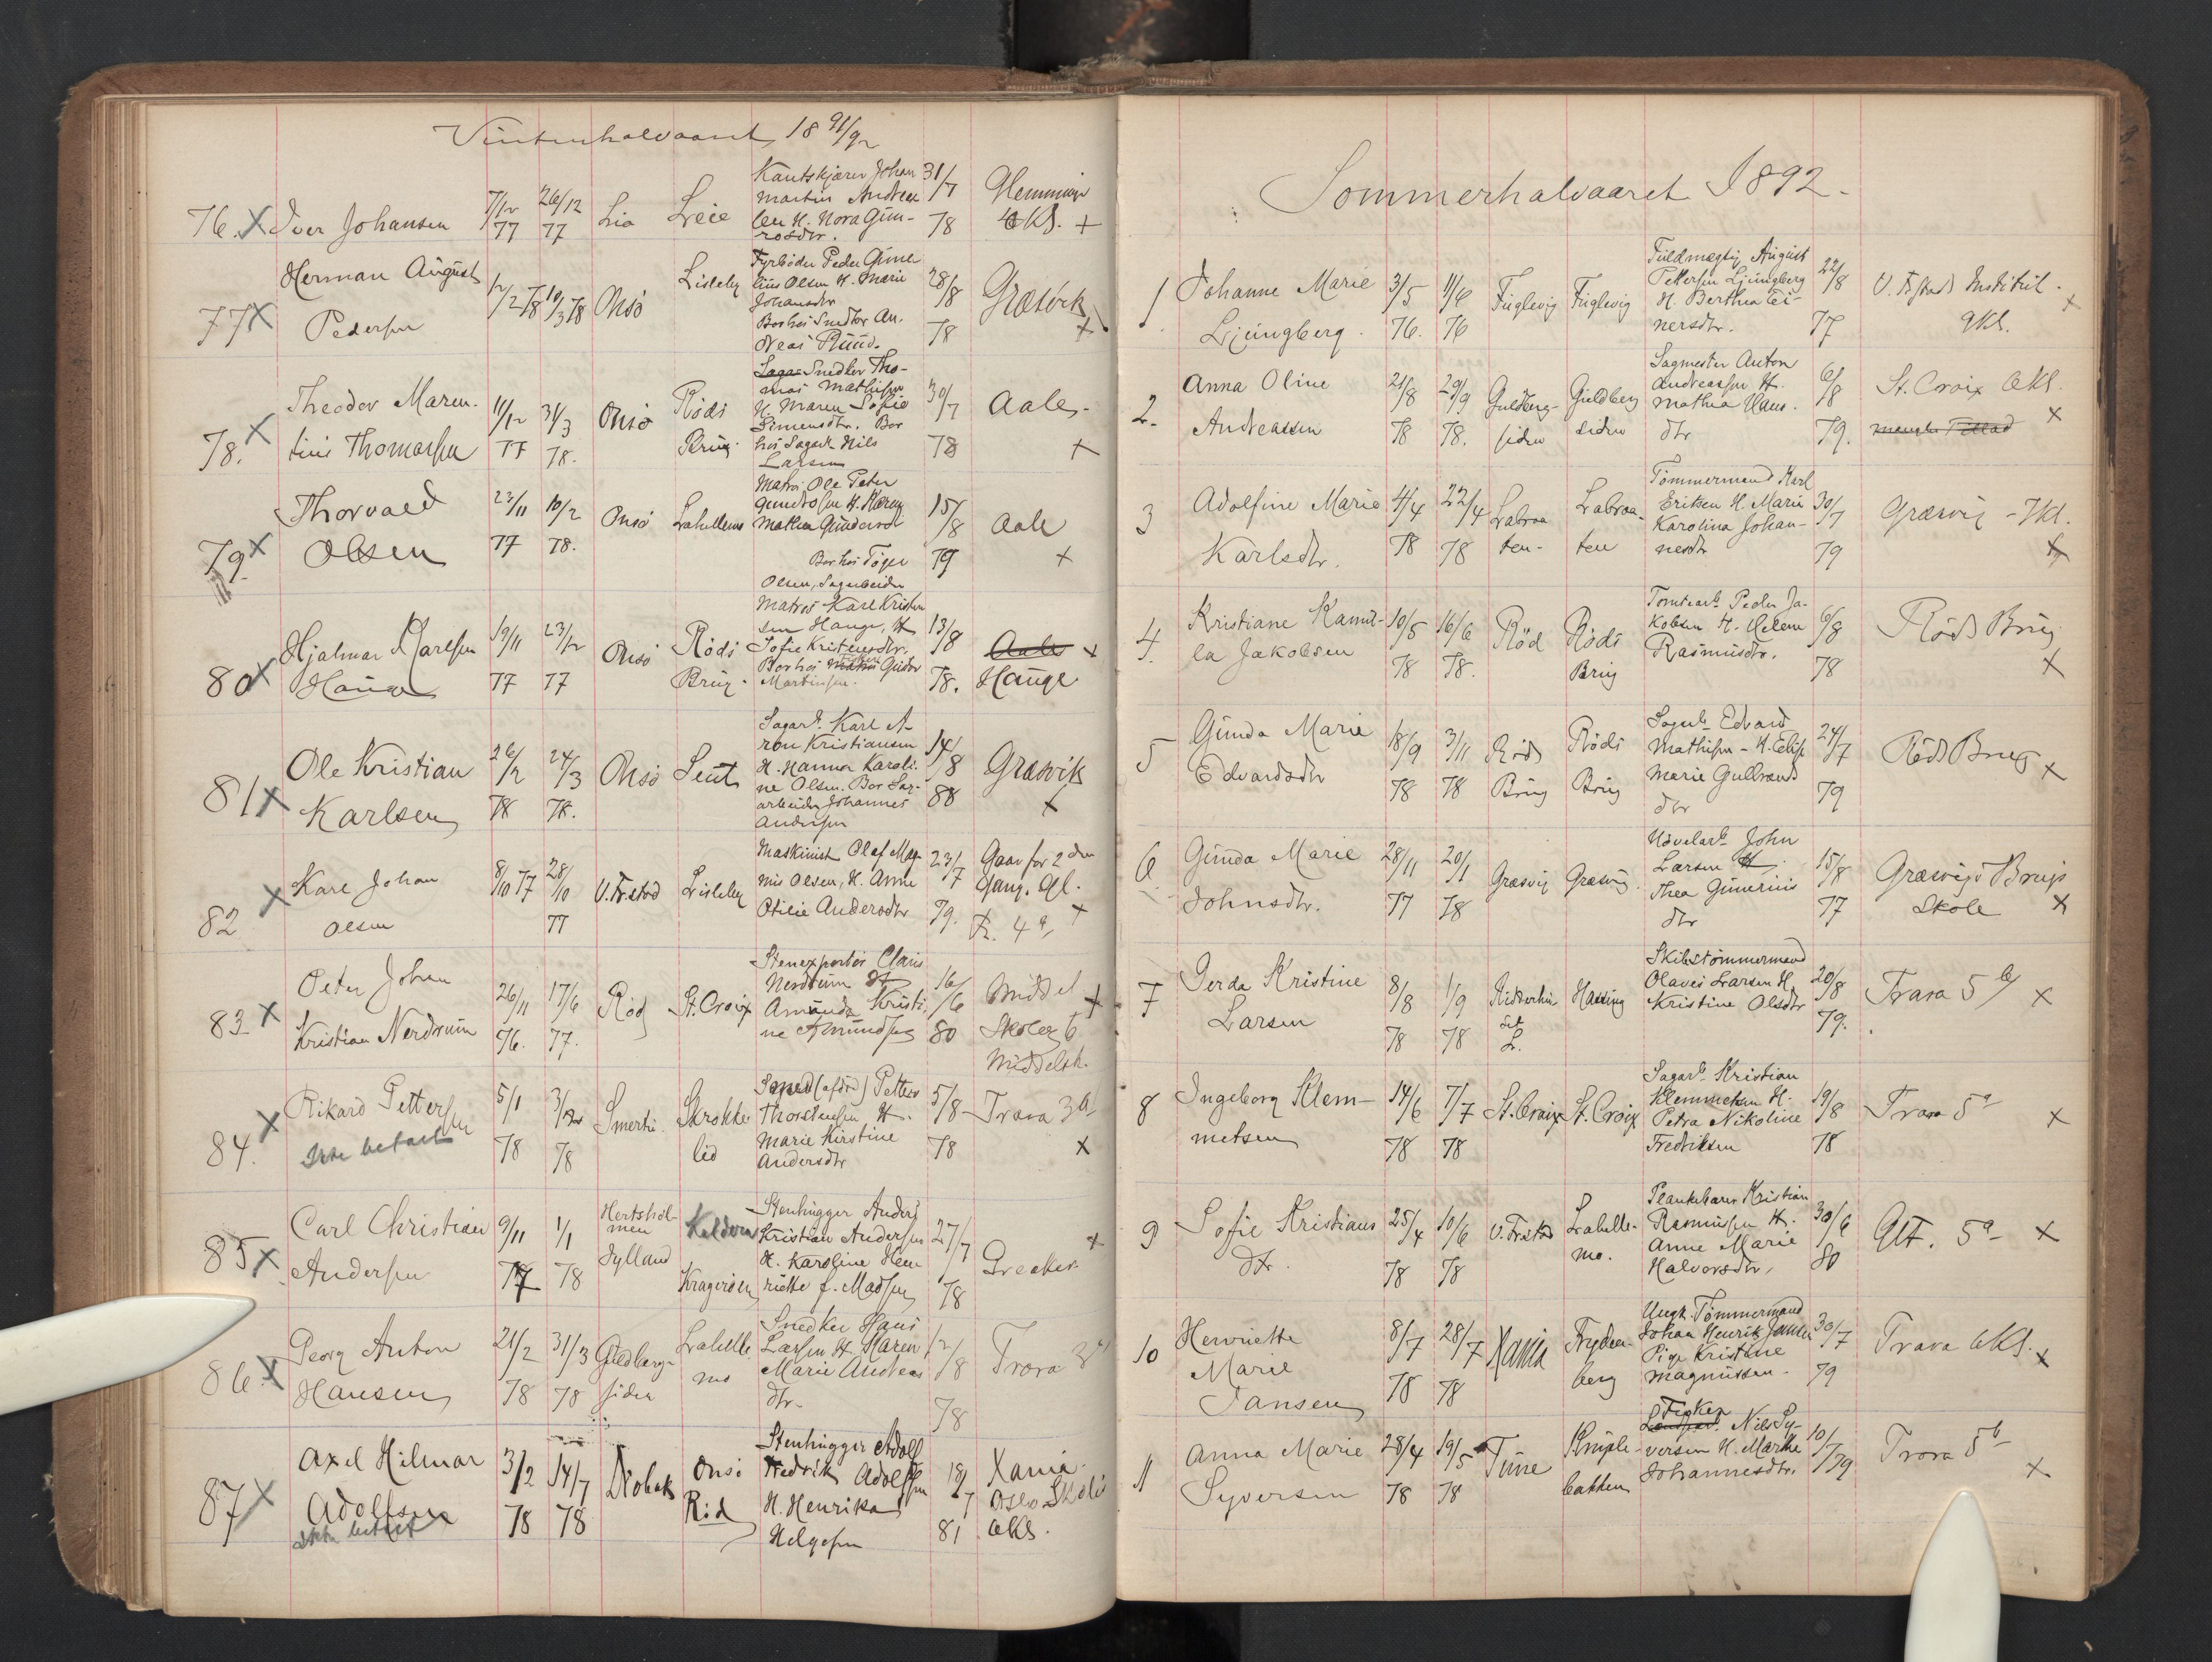 Vinterhalvaaret 18 91/92
76. x Iver Johansen 7/12 77 26/12 77 Lia Leie
Kantskjærer Johan
Martin Andrea
sen H. Nora Gun-
rosdtr.
31/7 78 Glemminge
6 Kl. +
77 x Herman August
Pedersen
1/2 78 10/3 78 Onsö Lisleby
Fyrböder Peder Gune
lius Olsen H. Marie
Johansdtr
Bor hos Snedker An-
dreas Ruud.
28/8 78 Græsvik
x
78. x Theodor Maren-
tius Thomassen
11/12 77 31/3 78. Onsö Röds
Brug.
Snedker Tho-
mas Mathisen
H. Maren Sofie
Simensdtr. Bor
hos Sagarb. Nils
Larsen
30/7 78 Aale.
x
79 x Thorvald
Olsen
23/11 77 10/2 78. Onsö Lahellemo
Matros Ole Peter
Gundrosen H. Karen
Mathea Gundersd
Bor hos Töger
Olsen, Sagarbeider
15/8 79 Aale
x
80 x Hjalmar Karlsen
Hauge
19/11 77 23/12 77 Onsö Röds
Brug.
Matros Karl Kristen
sen Hauge, H
Sofie Kristensdtr.
Bor hos Gustav
Martinsen.
13/8 78. Aale x
Hauge
81 x Ole Kristian
Karlsen
26/2 78 24/3 78. Onsö Seut
Sagarb. Karl A-
ron Kristiansen
H. Hanna Karoli-
ne Olsen. Bor Sag-
arbeider Johannes
Andersen
14/8 88 Græsvik
x
82 x Karl Johan
Olsen
8/10 77 28/10 77 V. Fr.stad Lisleby
Maskinist Olaf Mag-
nus Olsen, H. Anne
Otilie Andersdtr
23/7 79. Gaar for 2den
Gang. Gl.
Fr. 4a, +
83 x Peter Johan
Kristian Nerdrum
26/11 76. 17/6 77. Röd St. Croix
Stenexportör Claus
Nerdrum H
Amunda Kristi-
ne Amundsen
16/6 80 Middel x
Skolen 6
Middelsk.
84. x Rikard Pettersen
Ikke betalt
5/1 78 3/ 78 Smertu. Skrokke
lid
Smed (afdöd) Petter
Thorstensen H.
Marie Kirstine
Andersdtr
5/8 78 Trara 3a
x
85 x Carl Christian
Andersen
9/11 77 1/1 78 Hertshol-
men
Jylland
Krageröen
Stenhugger Anders
Kristian Andersen
H. Karoline Hen
riette f. Madsen
27/7 78 x
Greaker
86. x Georg Anton
Hansen
21/2 78 31/3 78 Guldbergs-
siden Lahelle
mo
Snedker Hans
Larsen H. Karen
Marie Andreas
dtr.
1/8 78 Trara 3a
87 x Axel Hilmar
Adolfsen
Ikke betalt
3/2 78 14/7 78 Dröbak Onsö
Röd
Stenhugger Adolf
Fredrik Adolfsen
H. Henrika
Helgesen
18/7 81 Xania.
Oslo Skole
6 Kl.
Sommerhalvaaret 1892.
1 Johanne Marie
Ljungberg.
3/5 76. 11/6 76 Fuglevig Fuglevig
Fuldmægtig August
Pettersen Ljungberg
H. Berthea Ei-
nersdtr.
22/8 77 V. F.stads Institut.
9 Kl. x
2. Anna Oline
Andreassen
21/8 78 29/9 78. Guldberg-
siden Guldberg
siden
Sagmester Anton
Andreassen H.
Mathea Hans.
dtr
6/8 79. St. Croix 6 Kl.
x
3 Adolfine Marie
Karlsdtr.
4/4 78 22/4 78 Labraa
ten- Labraa-
ten
Tömmermand Karl
Eriksen H. Marie
Karolina Johan-
nesdtr
30/7 79 Græsvig - 7 Kl.
x
4. Kristiane Kamil-
la Jakobsen
10/5 78 16/6 78. Röd Röds
Brug
Tomtearb. Peder Ja-
kobsen H. Helene
Rasmusdtr.
6/8 78 Röds Brug
x
5 Gunda Marie
Edvardsdtr
18/9 78 3/11 78 Röds
Brug Röds
Brug
Sagarb. Edvard
Mathisen - H. Elise
Marie Gulbrands
dtr
24/7 79 Röds Brug x
6 Gunda Marie
Johnsdtr.
28/11 77 20/1 78 Græsvig Græsvig.
Hövelarb. John
Larsen H.
Thea Gunerius
dtr
15/8 77 Græsvigs Brugs
Skole x
7 Gerda Kristine
Larsen
8/8 78 1/9 78 Hassing
Skibstömmermand
Olaves Larsen H.
Kristine Olsdtr
20/8 79. Trara 5 b/ x
8 Ingeborg Klem-
metsen
14/6 78 7/7 78 St. Croix St. Croix
Sagarb. Kristian
Klemmetsen H.
Petra Nikoline
Fredriksen
19/8 78 Trara 5a x
9 Sofie Kristians
dtr.
25/4 78 10/6 78 V. Fr.stad Lahelle-
mo.
Plankebærer Kristian
Rasmussen H.
Anne Marie
Halvorsdtr,
30/6 80 Glt. 5a x
10 Henriette
Marie
Jansen
8/7 78 28/7 78 Xania Fryden-
berg
Ungk. Tömmermand
Johan Henrik Jansen
Pige Kristine
Magnussen.
30/7 79 Trara 6 Kl. x
11 Anna Marie
Syversen
28/4 78 19/5 78 Tune Kruple-
bakken
Fisker
Nils Sy-
versen H. Marthe
Johannesdtr.
10/7 79 Trara 5b
x